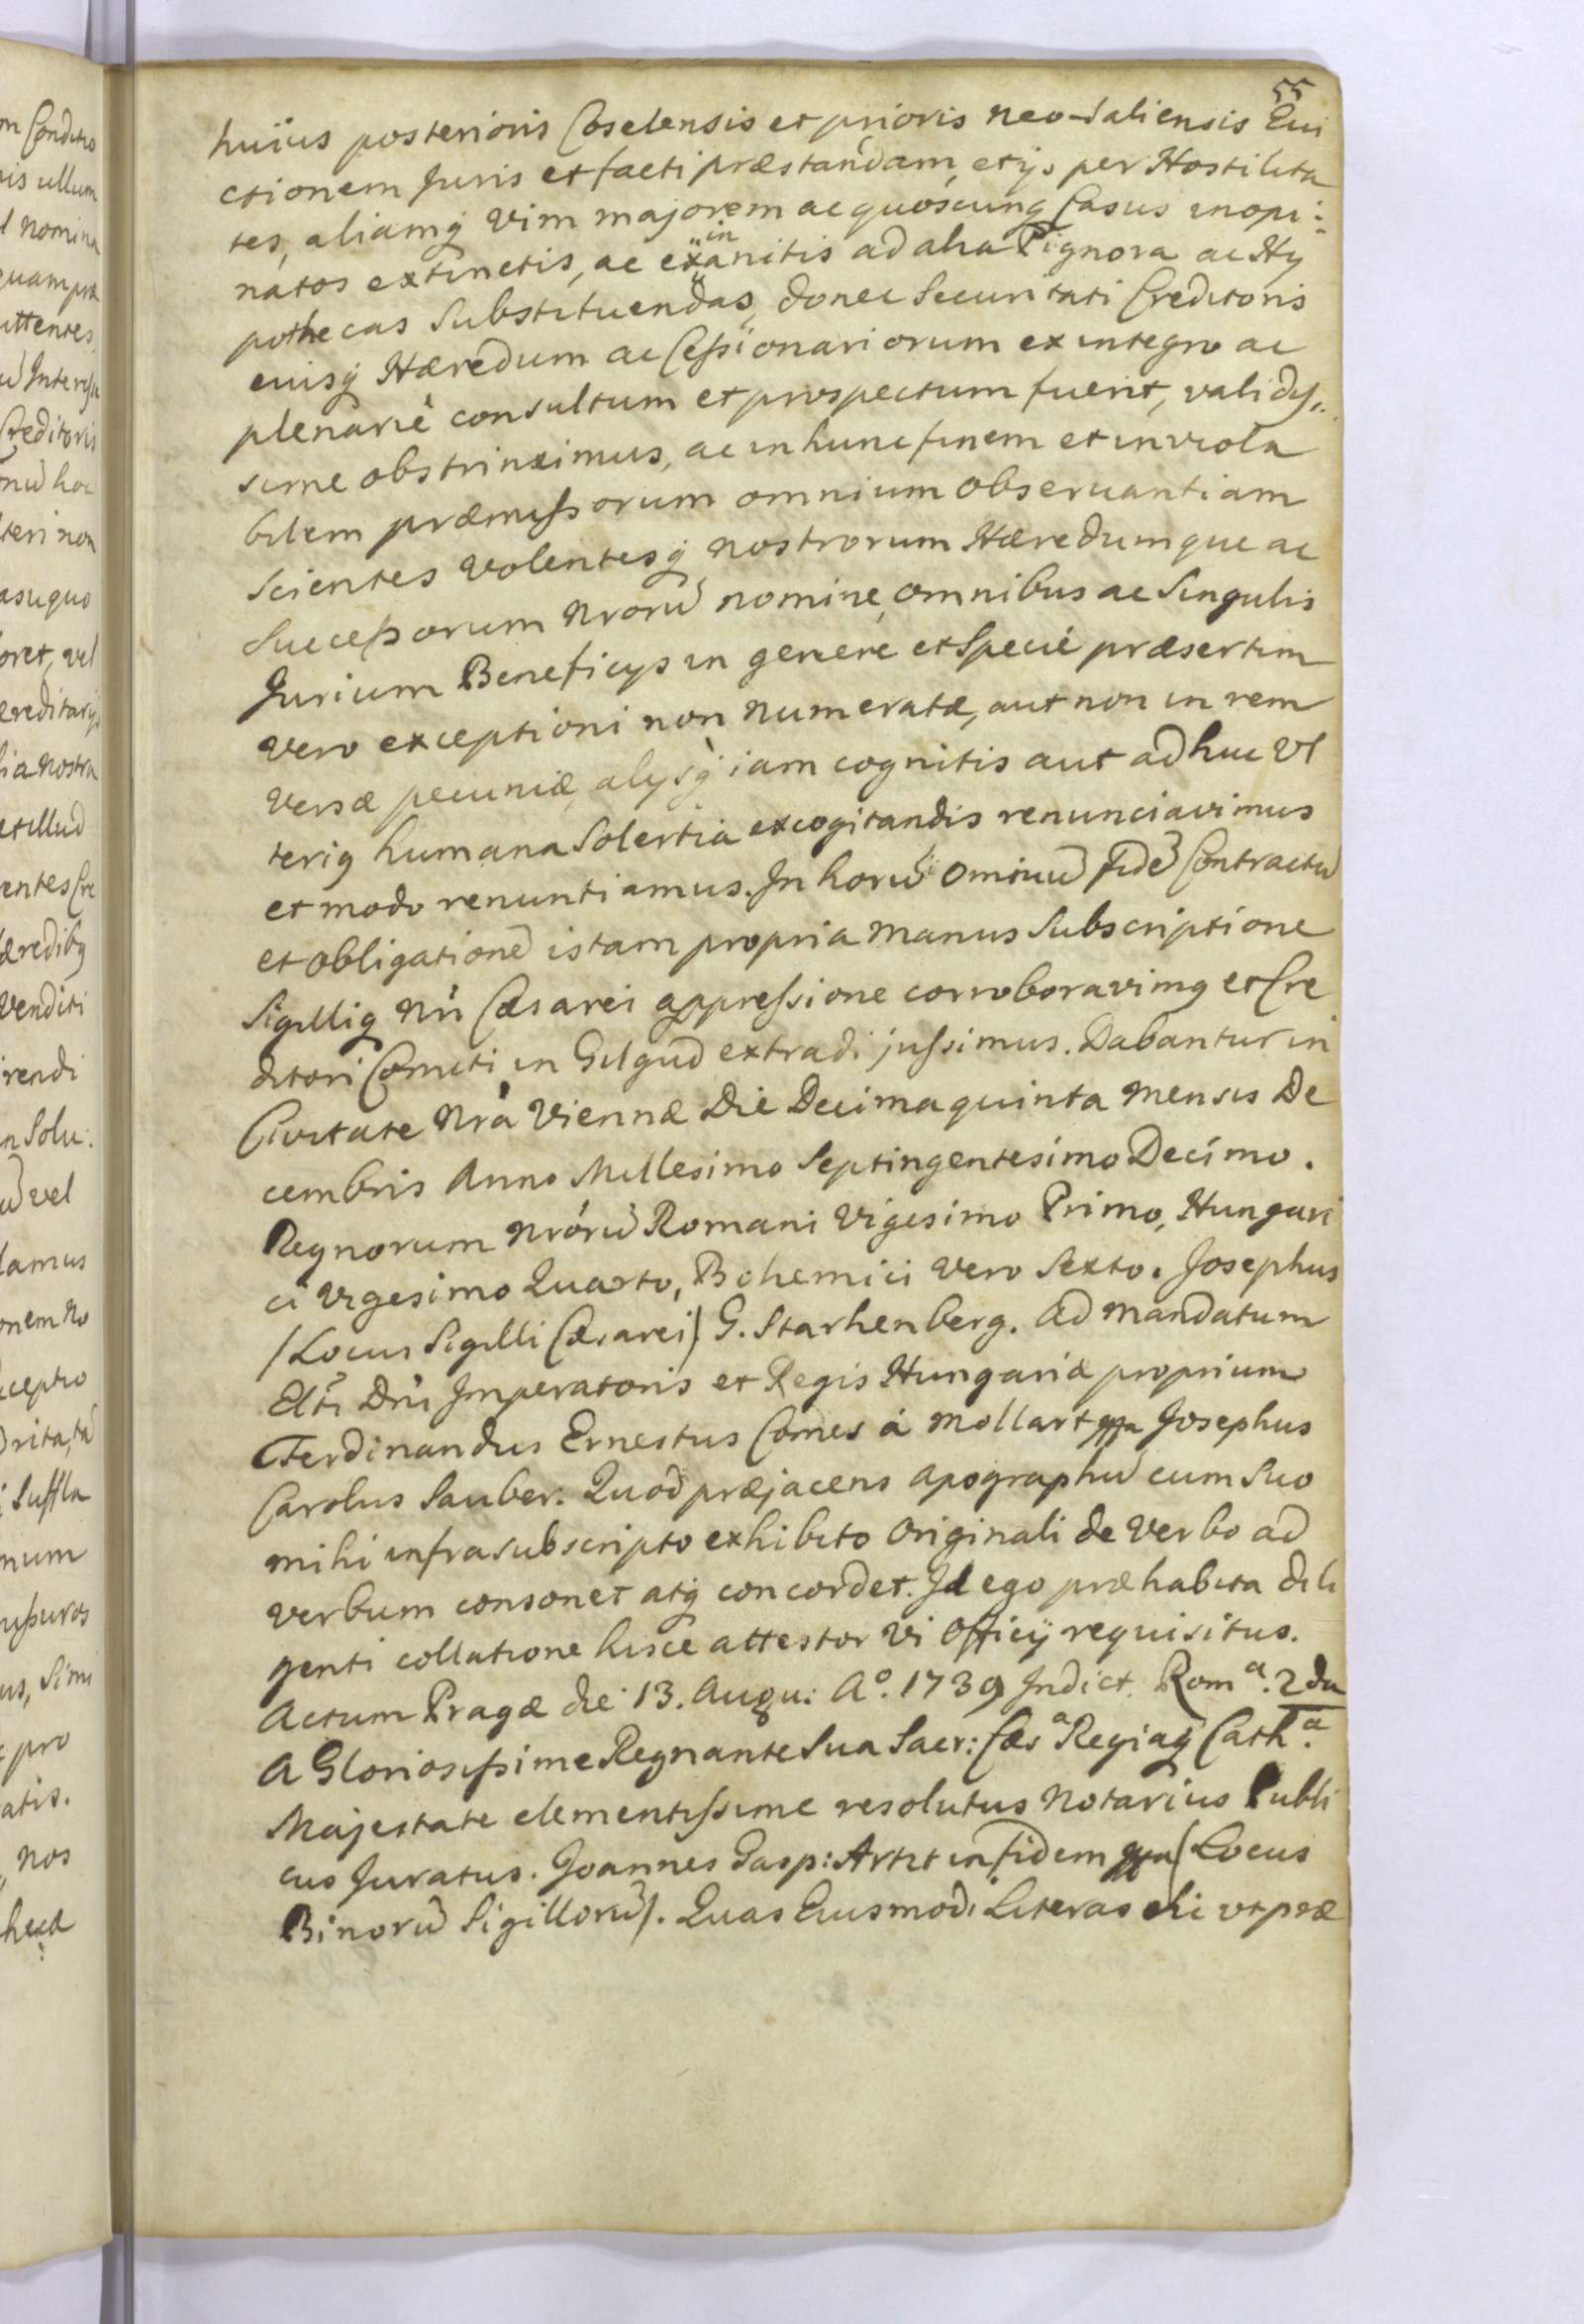 55
huius posterioris Coselensis et prioris neo-Saliensis Evi
ctionem Juris et facti præstandam, et ijs per Hostilita
tes, aliamq vim majorem ac quoscunq Casus inopi:
natos extinctis, ac exinanitis ad alia Pignora ac Hy
pothecas Substituendas, donec Securitati Creditoris
eiusq Hæredum ac Cessionariorum ex integro ac
plenariè consultum et prospectum fuerit, validis,,
sime obstrinximus, ac in hunc finem et inviola
bilem præmissorum omnium observantiam
Scientes volentesq nostrorum Hæredumque ac
Successorum nrorũ nomine, omnibus ac Singulis
Jurium Beneficijs in genere et Specie præsertim
vero exceptioni non numeratæ, aut non in rem
versæ pecuniæ, alijsq iam cognitis aut adhuc Vl
teriq humana Solertia excogitandis renunciavimus
et modo renuntiamus. In horũ omniũ fidẽ Contractũ
et obligationẽ istam propria manus Subscriptione
Sigilliq nri Cæsarei appressione corroboravimq et Cre
ditori Comiti in Gilgud extradi jussimus. Dabantur in
Civitate nrà Viennæ Die Decima quinta mensis De
cembris Anno Millesimo Septingentesimo Decimo.
Regnorum nrórũ Romani Vigesimo Primo, Hungari
ci Vigesimo Quarto, Bohemici vero Sexto. Josephus
/Locus Sigilli Cæsarei/ G. Starhenberg. Ad mandatum
Elti Dni Imperatoris et Regis Hungariæ proprium
Ferdinandus Ernestus Comes à Mollart mpp Josephus
Carolus Sauber. Quod præjacens apographũ cum Suo
mihi infrasubscripto exhibito Originali de verbo ad
verbum consonet atq concordet. Id ego præhabita dili
genti collatione hisce attestor vi Officij requisitus.
Actum Pragæ die 13. Augu: Aº. 1739 Indict. Romª. 2da
A Gloriosissime Regnante Sua Sacr: Cæsª Regiaq Cathª.
Majestate clementissime resolutus Notarius Publi
cus Juratus. Joannes Gasp: Artzt in fidem mpp /Locus
Binorũ Sigillorũ/. Quas Eiusmodi Literas vt præ